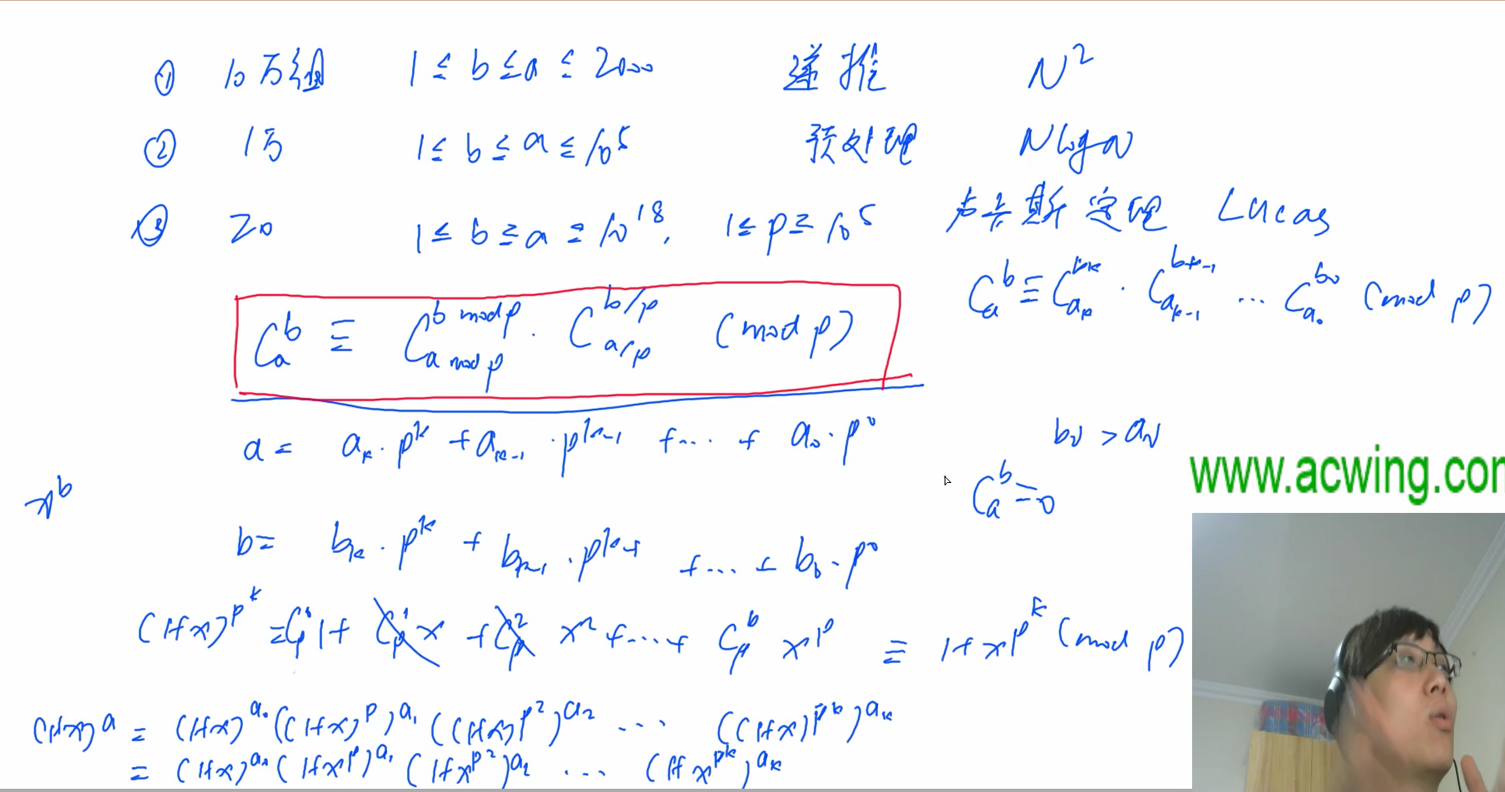 ① 10万组 1 ≤ b ≤ a ≤ 2000 递推 N²
② 1万 1 ≤ b ≤ a ≤ 10⁵ 预处理 NlogN
③ 20 1 ≤ b ≤ a ≤ 10¹⁸, 1 ≤ p ≤ 10⁵ 卢卡斯定理 Lucas
C_a^b ≡ C_{a_k}^{b_k} · C_{a_{k-1}}^{b_{k-1}} ... C_{a_0}^{b_0} (mod p)
C_a^b ≡ C_{a mod p}^{b mod p} · C_{a/p}^{b/p} (mod p)
a = a_k · p^k + a_{k-1} · p^{k-1} + ... + a_0 · p^0
b_0 > a_0
www.acwing.com
x^b
C_a^b = 0
b = b_k · p^k + b_{k-1} · p^{k-1} + ... + b_0 · p^0
(1+x)^{p^k} = 1 + C_p^1 x + C_p^2 x² + ... + C_p^p x^p ≡ 1 + x^{p^k} (mod p)
(1+x)^a = (1+x)^{a_0} ((1+x)^p)^{a_1} ((1+x)^{p^2})^{a_2} ... ((1+x)^{p^k})^{a_k}
= (1+x)^{a_0} (1+x^p)^{a_1} (1+x^{p^2})^{a_2} ... (1+x^{p^k})^{a_k}